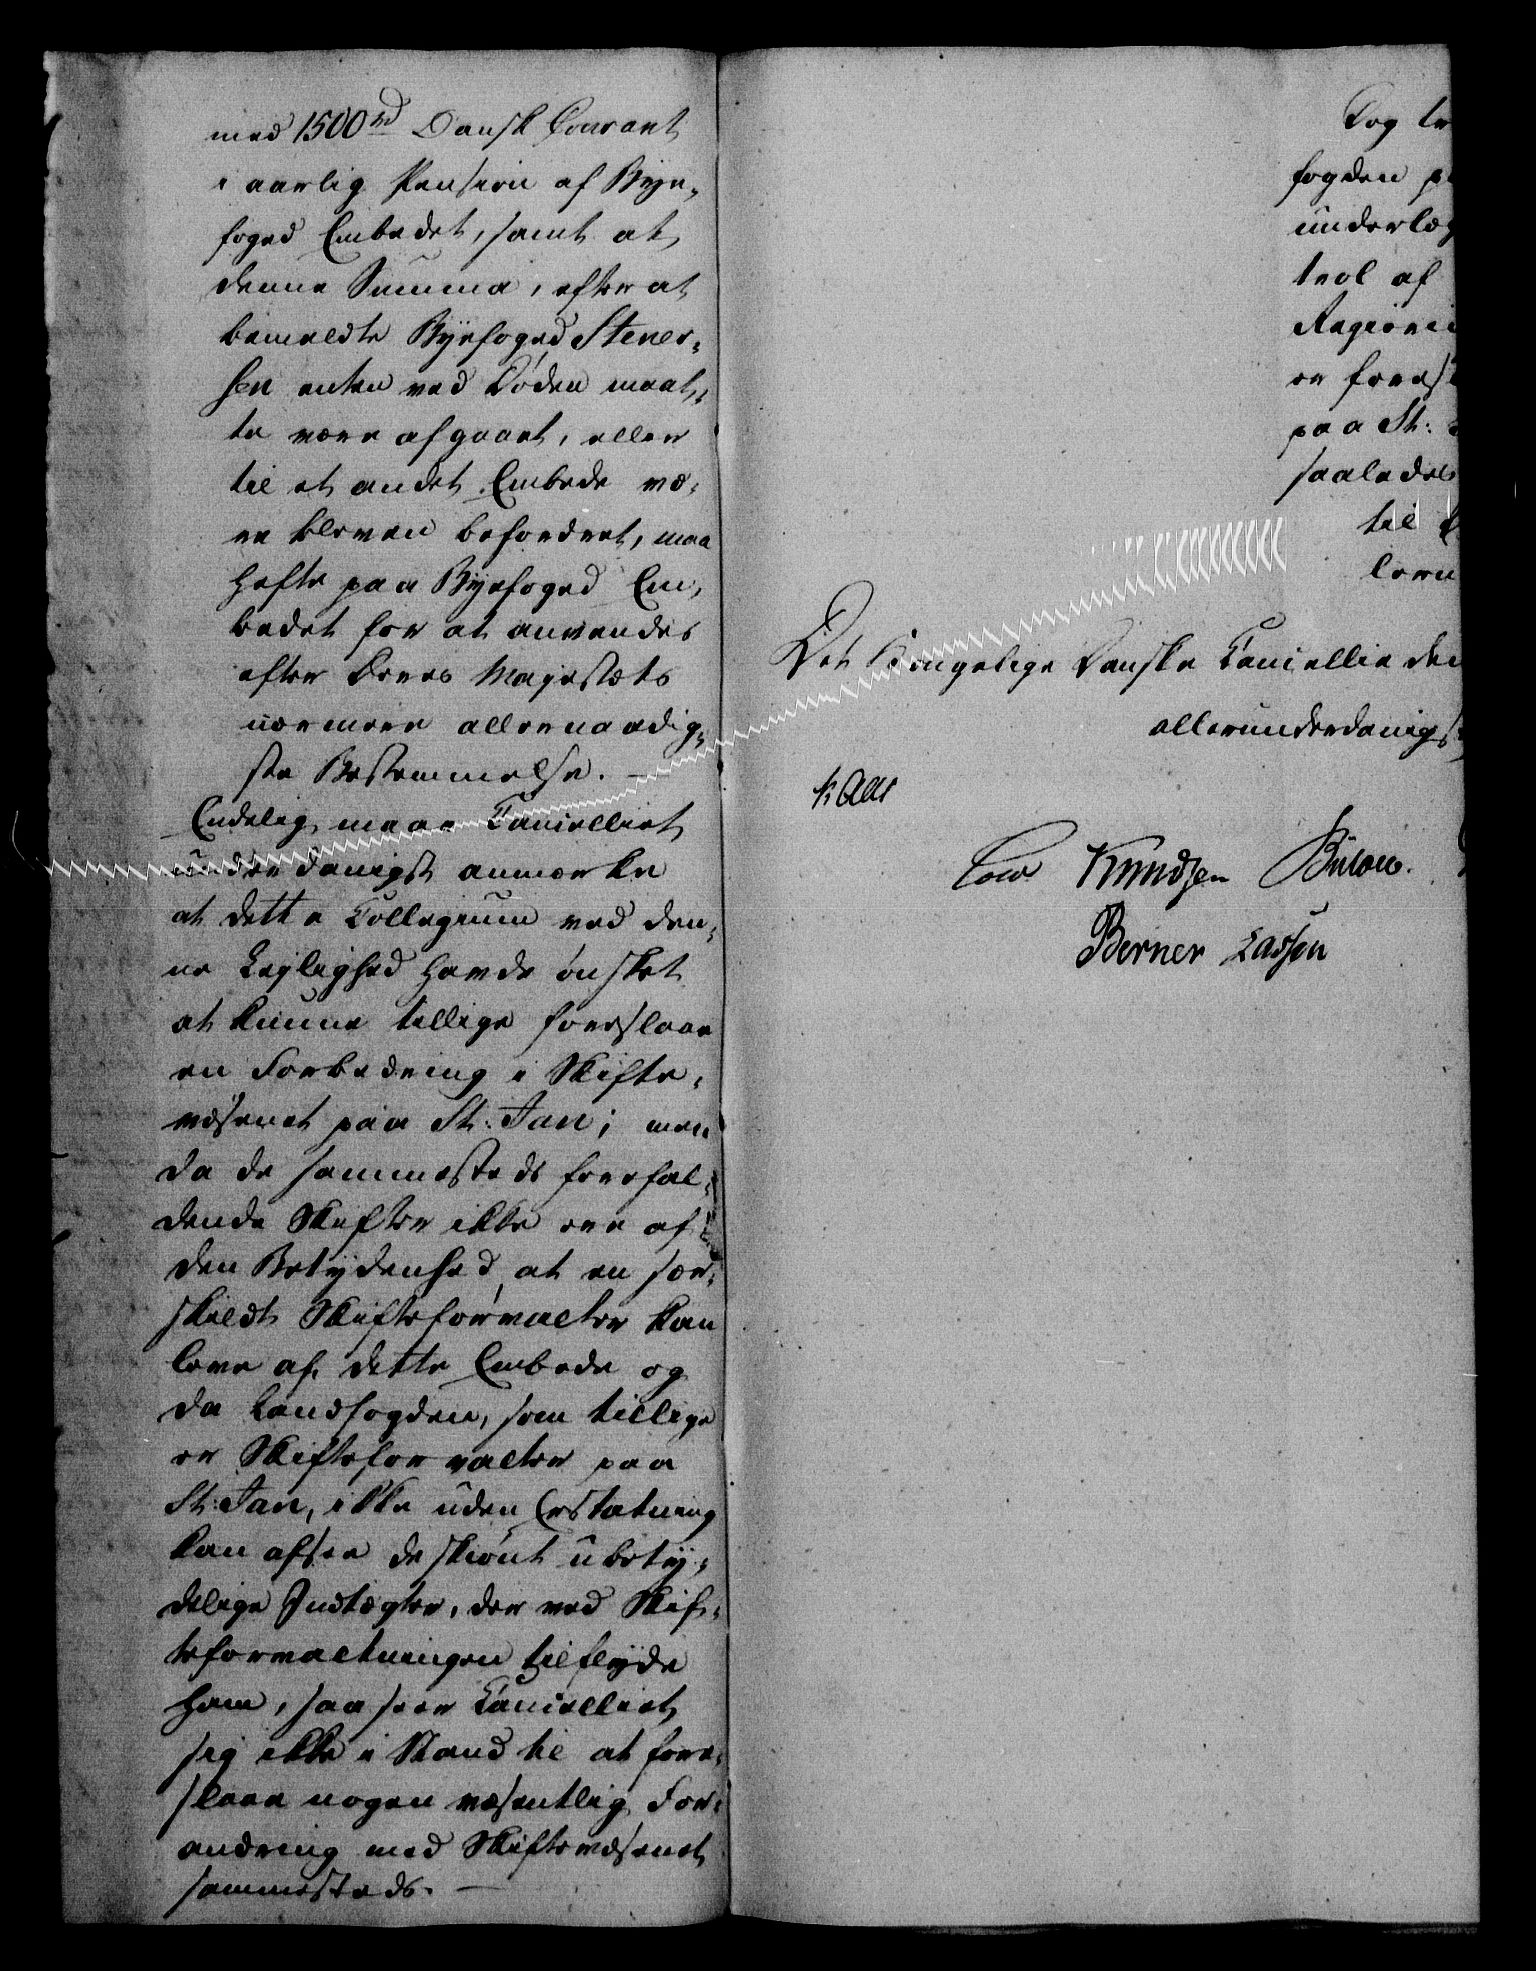 med 1500 rd Dansk Courant
i aarlig Pension af Bye-
foged Embedet, samt at
denne Summa, efter at
bemeldte Byefoged Stener-
sen enten ved Døden maat-
te være afgaaet, eller
til et andet Embede væ-
re bleven befordret, maa
hefte paa Byefoged Em-
bedet for at anvendes
efter Deres Majestæts
nærmere allernaadig-
ste Bestemmelse. —
Endelig maae Cancelliet
underdanigst anmærke
at dette Collegium ved den-
ne Leylighed havde ønsket
at kunne tillige foreslaae
en Forbedring i Skifte-
væsenet paa St: Jan; men
da de sammesteds forefal-
dende Skifter ikke ere af
den Betydenhed at en sær-
skildt Skifteforvalter kan
leve af dette Embede og
da Landfogden, som tillige
er Skifteforvalter paa
St: Jan, ikke uden Erstatning
kan afsee de skiønt ubety-
delige Indtægter, der ved Skif-
teforvaltningen tilflyde
ham, saa seer Cancelliet
sig ikke i Stand til at fore-
slaae nogen væsentlig For-
andring med Skiftevæsenet
sammesteds. —
Det Kongelige Danske Cancellie den
allerunderdanigst
Kaas
Cold Knudsen Bülow.
Berner Lassen
fogden
underlæg
trol af
er
paa St:
saaledes
til